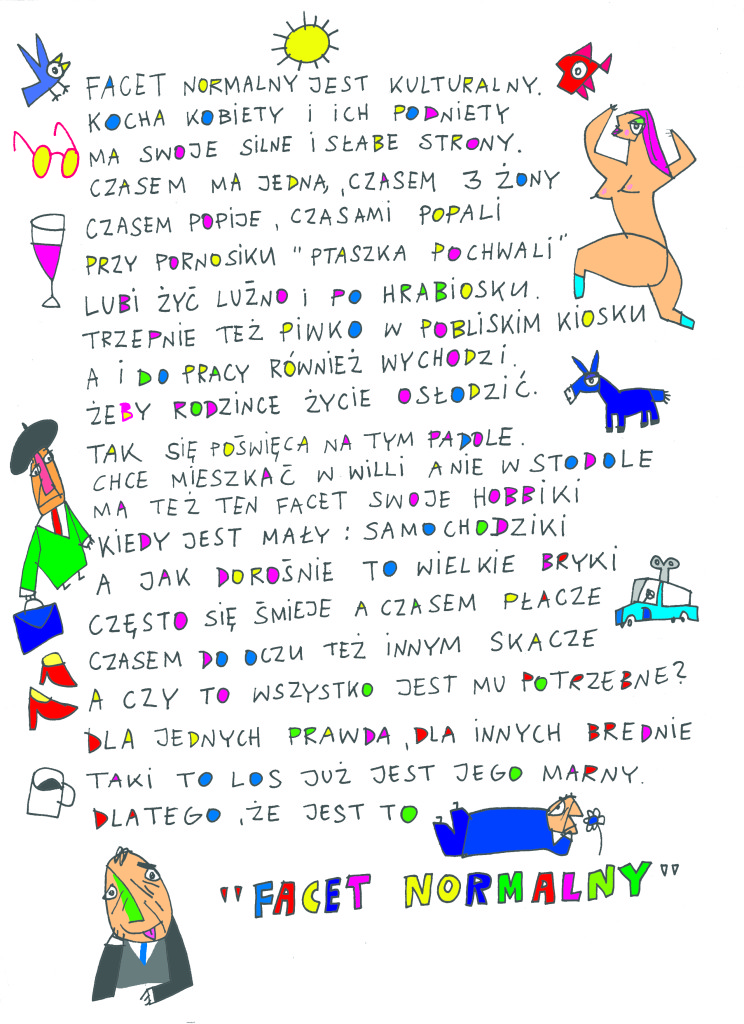 FACET NORMALNY JEST KULTURALNY.
KOCHA KOBIETY I ICH PODNIETY
MA SWOJE SILNE I SŁABE STRONY.
CZASEM MA JEDNĄ, CZASEM 3 ŻONY
CZASEM POPIJE, CZASAMI POPALI
PRZY PORNOSIKU "PTASZKA POCHWALI"
LUBI ŻYĆ LUŹNO I PO HRABIOSKU.
TRZEPNIE TEŻ PIWKO W POBLISKIM KIOSKU
A I DO PRACY RÓWNIEŻ WYCHODZI.
ŻEBY RODZINCE ŻYCIE OSŁODZIĆ.
TAK SIĘ POŚWIĘCA NA TYM PADOLE.
CHCE MIESZKAĆ W WILLI A NIE W STODOLE
MA TEŻ TEN FACET SWOJE HOBBIKI
KIEDY JEST MAŁY: SAMOCHODZIKI
A JAK DOROŚNIE TO WIELKIE BRYKI
CZĘSTO SIĘ ŚMIEJE A CZASEM PŁACZE
CZASEM DO OCZU TEŻ INNYM SKACZE
A CZY TO WSZYSTKO JEST MU POTRZEBNE?
DLA JEDNYCH PRAWDA, DLA INNYCH BREDNIE
TAKI TO LOS JUŻ JEST JEGO MARNY.
DLATEGO, ŻE JEST TO
"FACET NORMALNY"